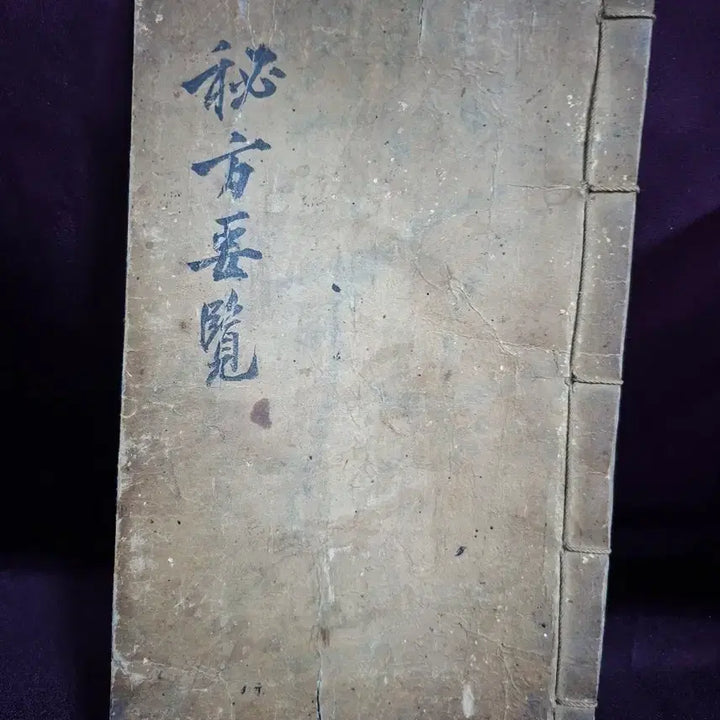 秘方要覽